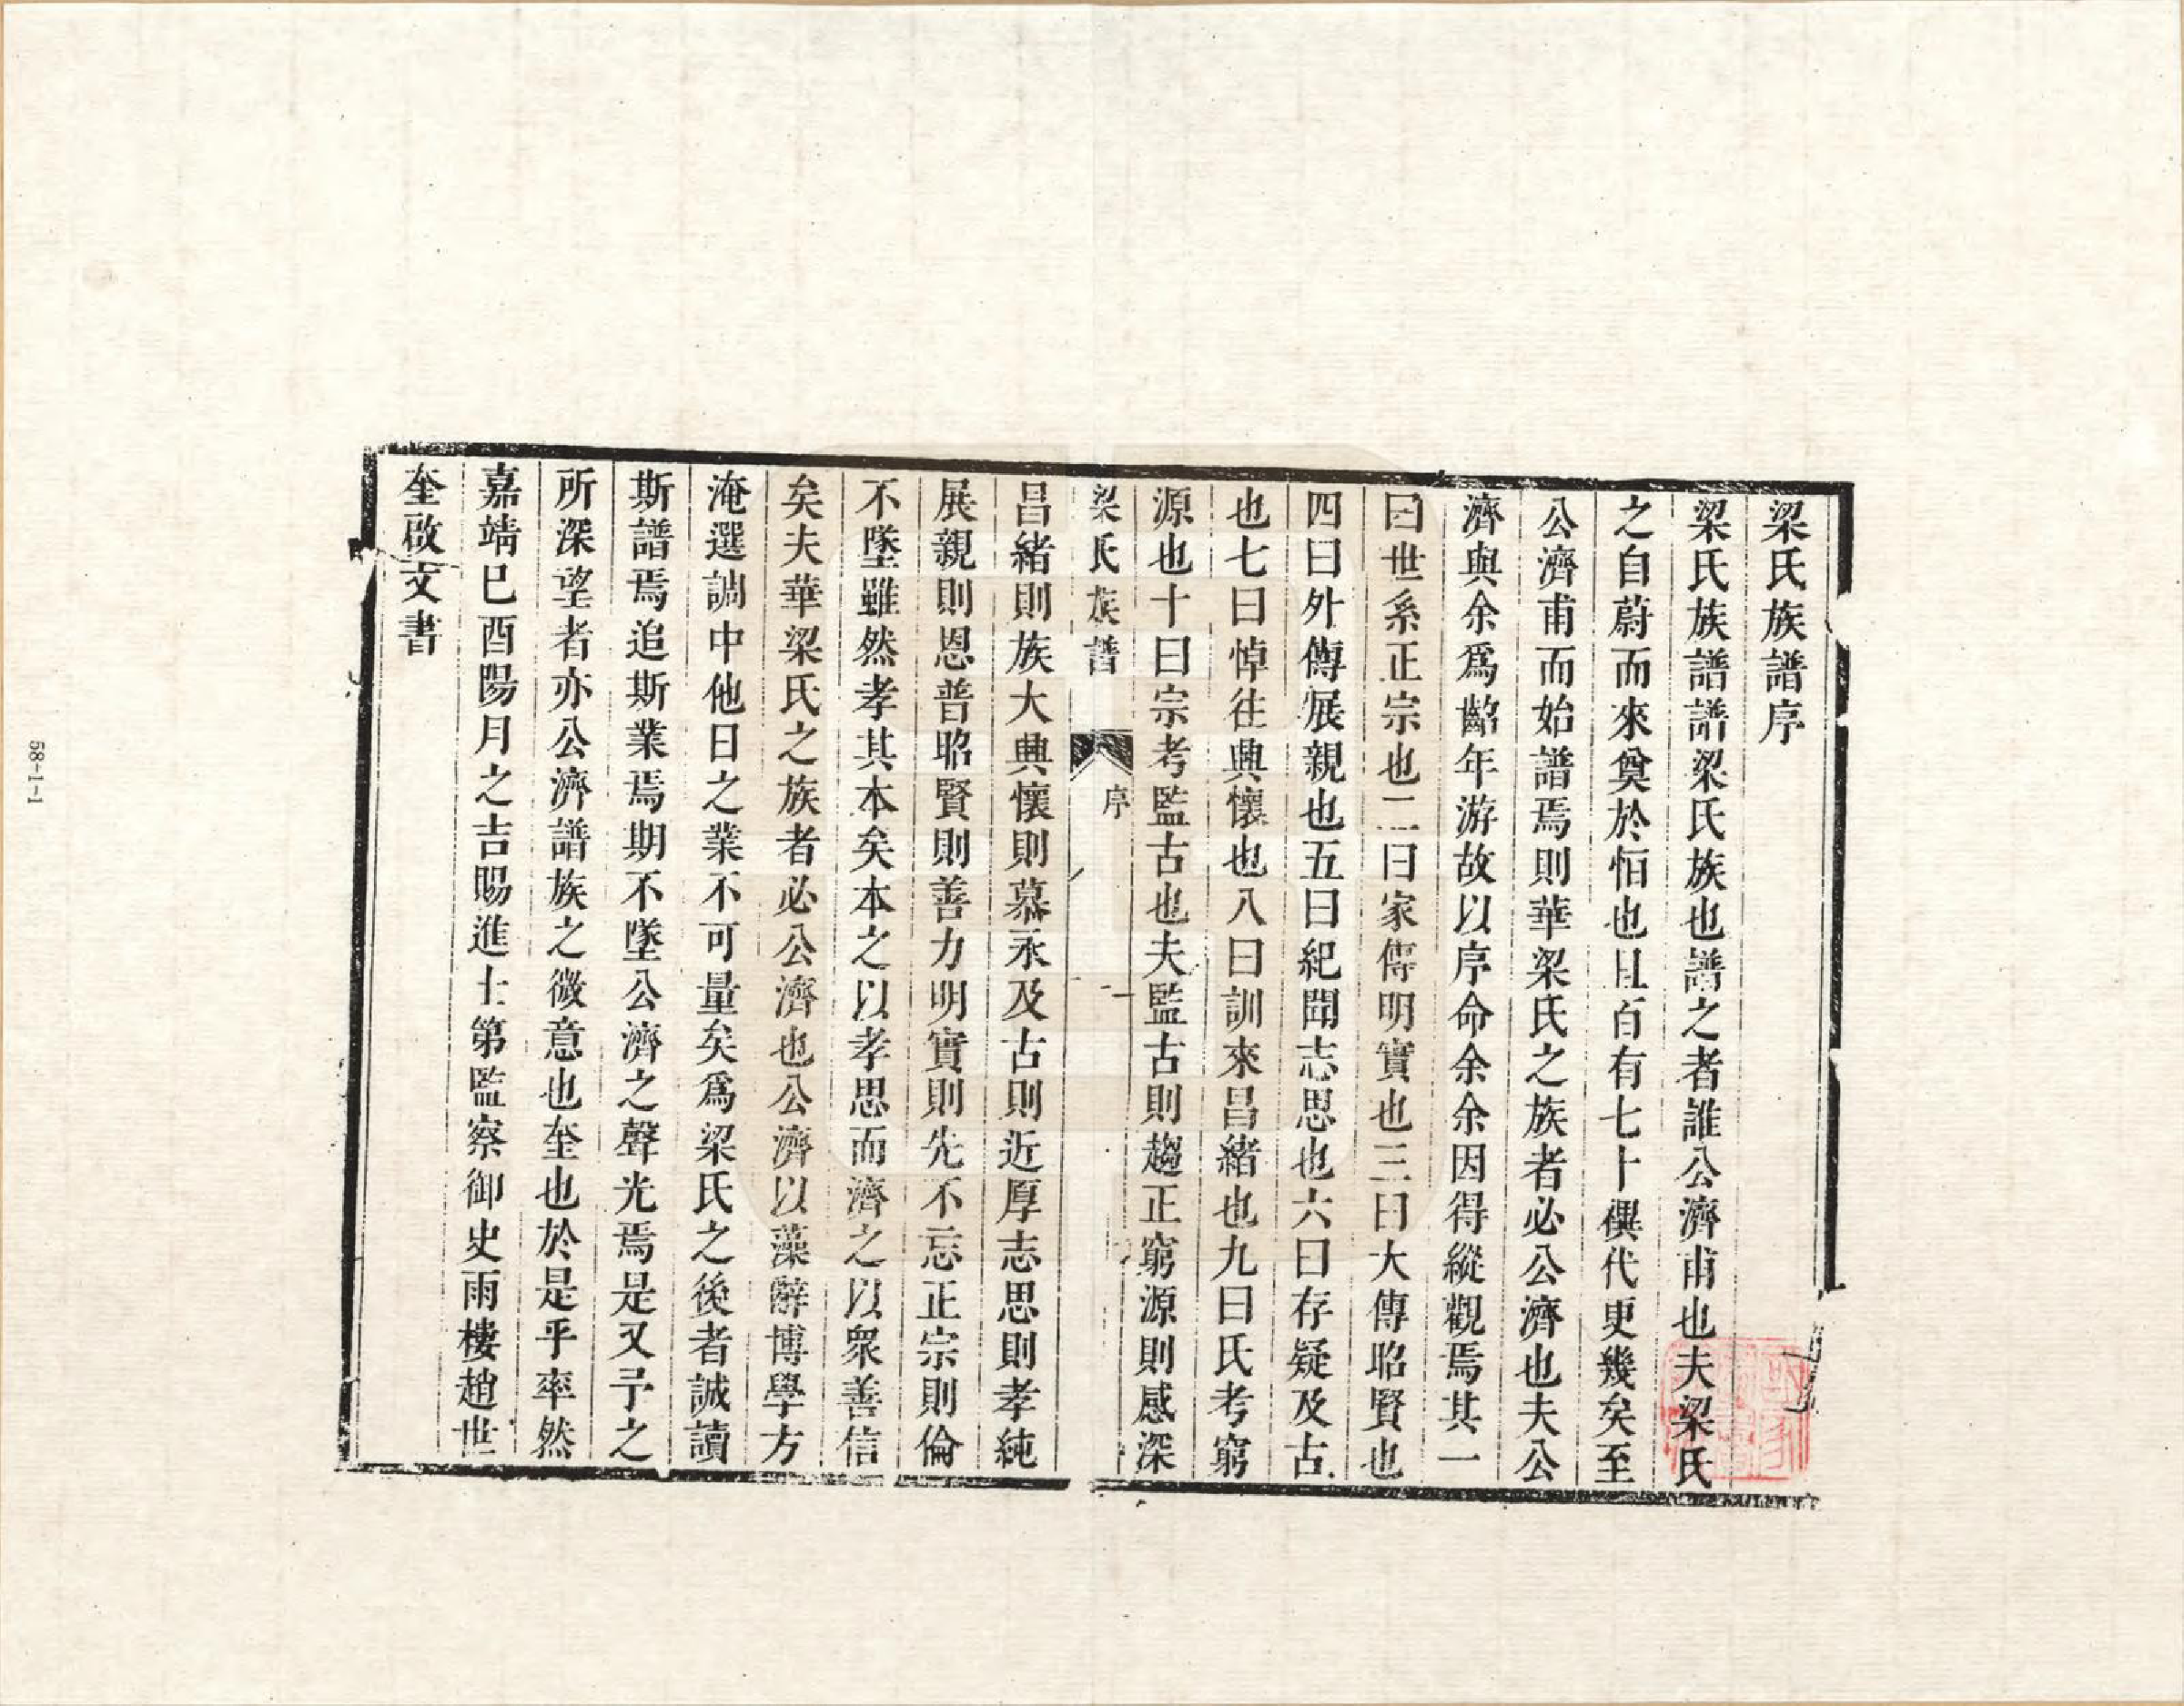 梁氏族譜序
梁氏族譜譜梁氏族也譜之者誰公濟甫也夫梁氏
之自蔚而來奠於恒也且百有七十禩代更幾矣至
公濟甫而始譜焉則華梁氏之族者必公濟也夫公
濟與余爲齠年游故以序命余余因得縱觀焉其一
曰世系正宗也二曰家傳明實也三曰大傳昭賢也
四曰外傳展親也五曰紀聞志思也六曰存疑及古
也七曰悼往興懷也八曰訓來昌緒也九曰氏考窮
源也十曰宗考監古也夫監古則趨正窮源則感深
梁氏族譜 序 一
昌緒則族大興懷則慕永及古則近厚志思則孝純
展親則恩普昭賢則善力明實則先不忘正宗則倫
不墜雖然孝其本矣本之以孝思而濟之以衆善信
矣夫華梁氏之族者必公濟也公濟以藻辭博學方
淹選調中他日之業不可量矣爲梁氏之後者誠讀
斯譜焉追斯業焉期不墜公濟之聲光焉是又予之
所深望者亦公濟譜族之微意也奎也於是乎率然
嘉靖己酉陽月之吉賜進士第監察御史雨樓趙世
奎啟文書
58-1-1